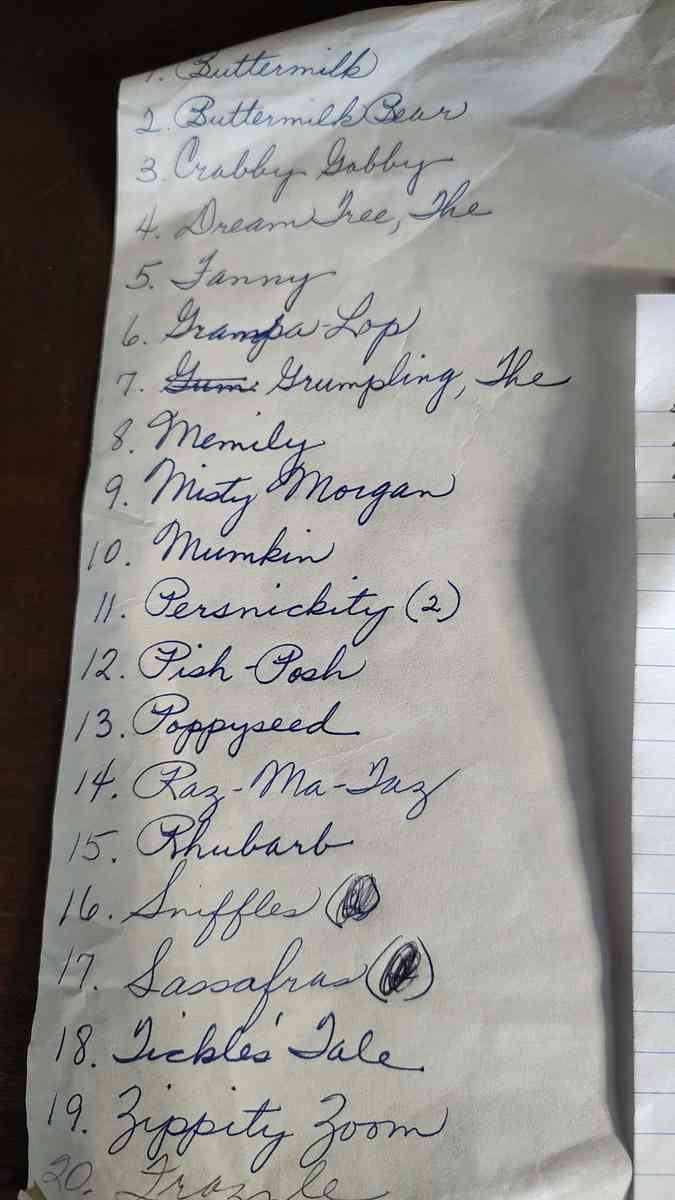 1. Buttermilk
2. Buttermilk Bear
3. Crabby Gabby
4. Dream Tree, The
5. Fanny
6. Grampa-Lop
7. Gum Grumpling, The
8. Memily
9. Misty Morgan
10. Mumkin
11. Persnickity (2)
12. Pish-Posh
13. Poppyseed
14. Raz-Ma-Taz
15. Rhubarb
16. Sniffles
17. Sassafras
18. Tickle's Tale
19. Zippity Zoom
20.